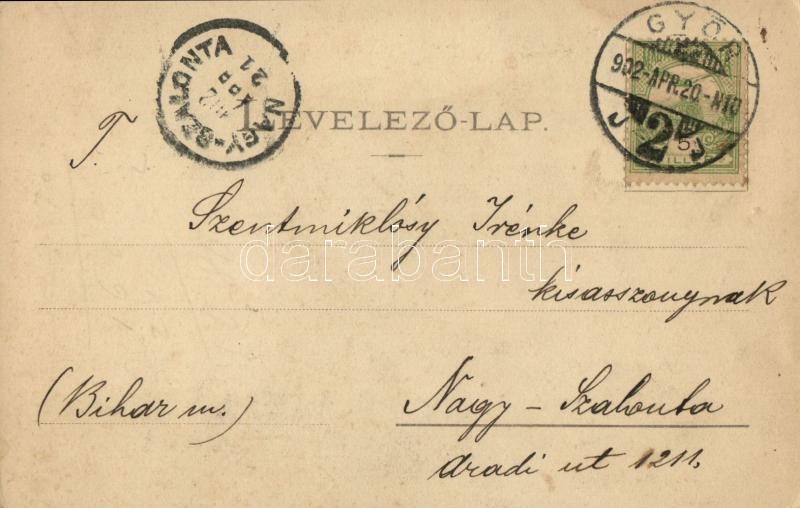 NAGY-SZALONTA
APR
21
GYŐR
902-APR.20.-N10
2
J J
5
LEVELEZŐ-LAP.
T.
Szentmiklósy Irénke
darabanth
kisasszonynak
(Bihar m.)
Nagy-Szalonta
Aradi ut 1211.